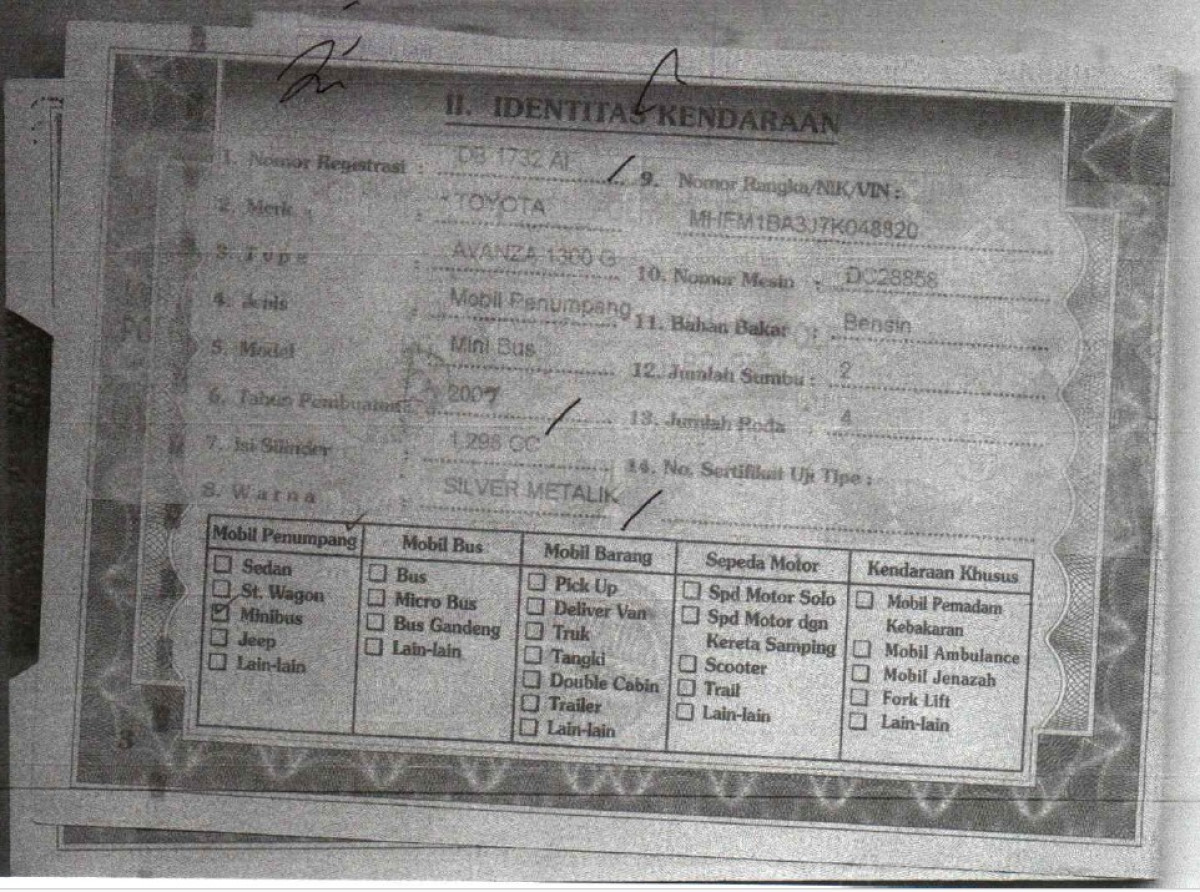 II. IDENTITAS KENDARAAN
1. Nomor Registrasi : DB 1732 AL
2. Merk : TOYOTA
3. Type : AVANZA 1300 G
4. Jenis : Mobil Penumpang
5. Model : Mini Bus
6. Tahun Pembuatan : 2007
7. Isi Silinder : 1.298 CC
8. Warna : SILVER METALIK
9. Nomor Rangka/NIK/VIN :
MHFM1BA3J7K048820
10. Nomor Mesin : DC28858
11. Bahan Bakar : Bensin
12. Jumlah Sumbu : 2
13. Jumlah Roda : 4
14. No. Sertifikat Uji Tipe :
Mobil Penumpang
Sedan
St. Wagon
Minibus
Jeep
Lain-lain
Mobil Bus
Bus
Micro Bus
Bus Gandeng
Lain-lain
Mobil Barang
Pick Up
Deliver Van
Truk
Tangki
Double Cabin
Trailer
Lain-lain
Sepeda Motor
Spd Motor Solo
Spd Motor dgn
Kereta Samping
Scooter
Trail
Lain-lain
Kendaraan Khusus
Mobil Pemadam
Kebakaran
Mobil Ambulance
Mobil Jenazah
Fork Lift
Lain-lain
3